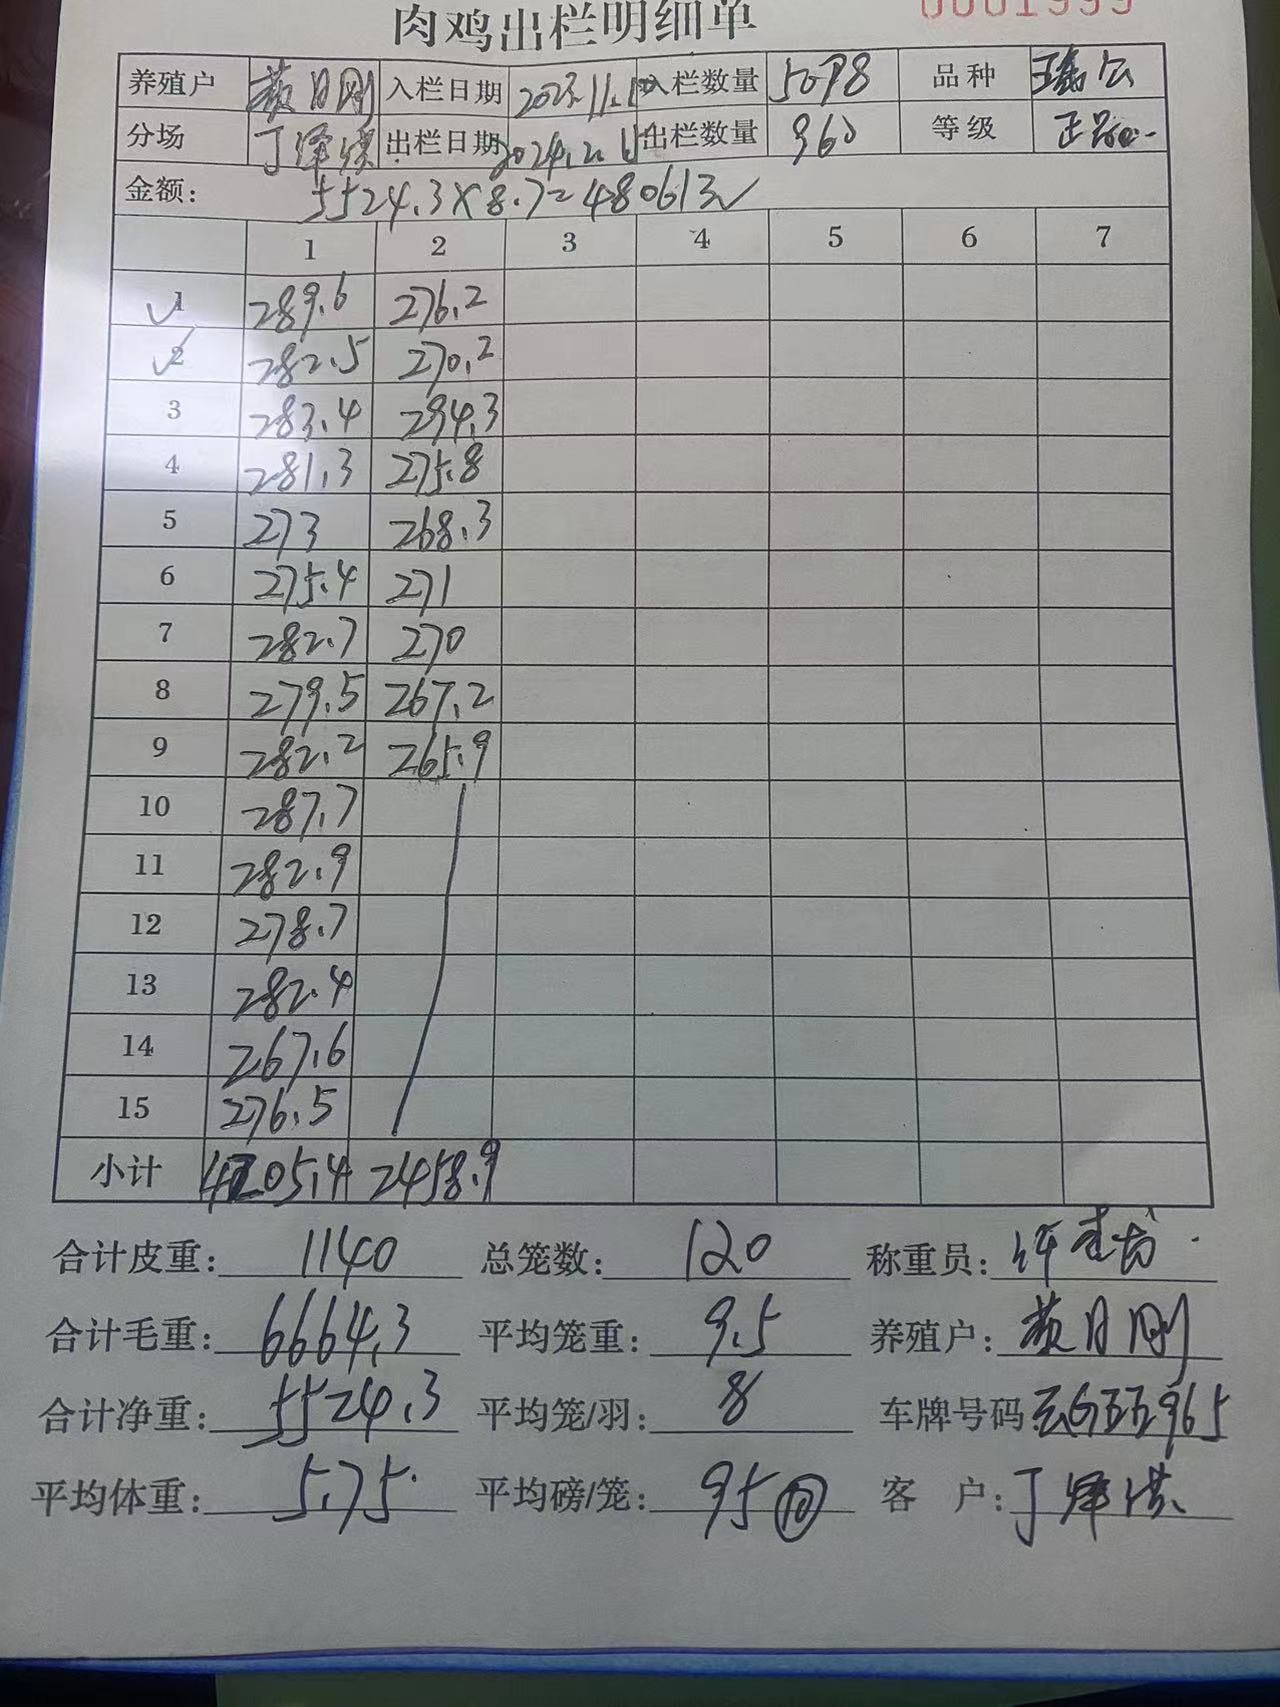 肉鸡出栏明细单
0001999
养殖户 黄日刚 入栏日期 2023.11. 入栏数量 5098 品种 瑶公
分场 丁泽洪 出栏日期 2024.2. 出栏数量 960 等级 正品
金额: 5524.3×8.7=48061元
1 2 3 4 5 6 7
1 289.6 276.2
2 282.5 270.2
3 283.4 294.3
4 281.3 275.8
5 273 268.3
6 275.4 271
7 282.7 270
8 279.5 267.2
9 282.2 265.9
10 287.7
11 282.9
12 278.7
13 282.4
14 267.6
15 276.5
小计 4205.4 2458.9
合计皮重: 1140 总笼数: 120 称重员:
合计毛重: 6664.3 平均笼重: 9.5 养殖户: 黄日刚
合计净重: 5524.3 平均笼/羽: 8 车牌号码
平均体重: 5.75 平均磅/笼: 95 客 户: 丁泽洪